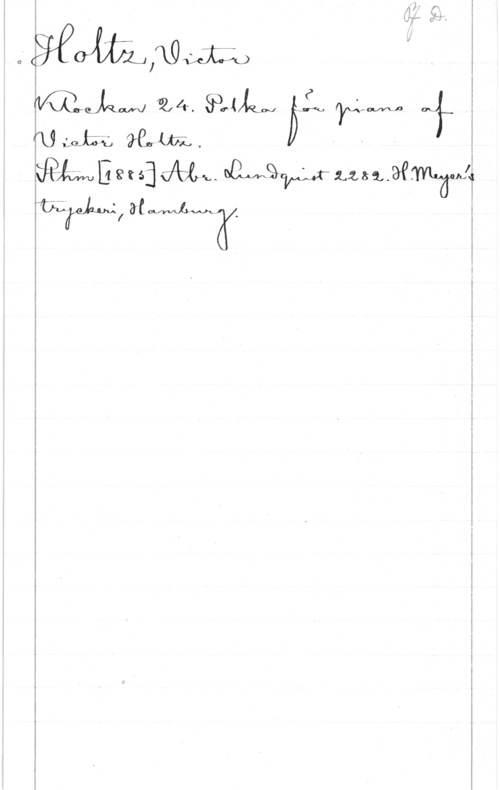 Pf D.
Holtz, Victor
Klockan 24. Polka för piano af
Victor Holtz.
Sthm [1885] Abr. Lundquist 2282. H. Meyer's
tryckeri, Hamburg.